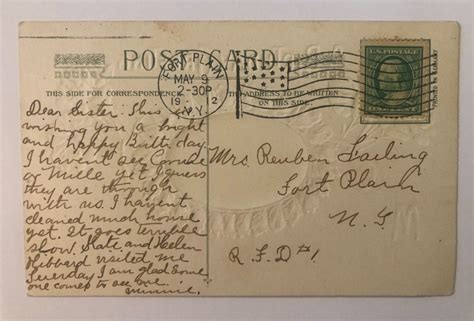 POST CARD
THIS SIDE FOR CORRESPONDENCE
THE ADDRESS TO BE WRITTEN
ON THIS SIDE.
FORT PLAIN
MAY 9
2-30P
19 2
N.Y.
U.S. POSTAGE
Dear Sister: This is
wishing you a bright
and happy Birthday.
I havent see Carrie
or Mille yet I guess
they are through
with us. I havent
cleaned much house
yet. It goes terrible
slow. Kate and Helen
Hibbard visited me
Tuesday I am glad some
one comes to see me.
Minnie.
Mrs. Reuben Failing
Fort Plain
N. Y.
R. F. D #1